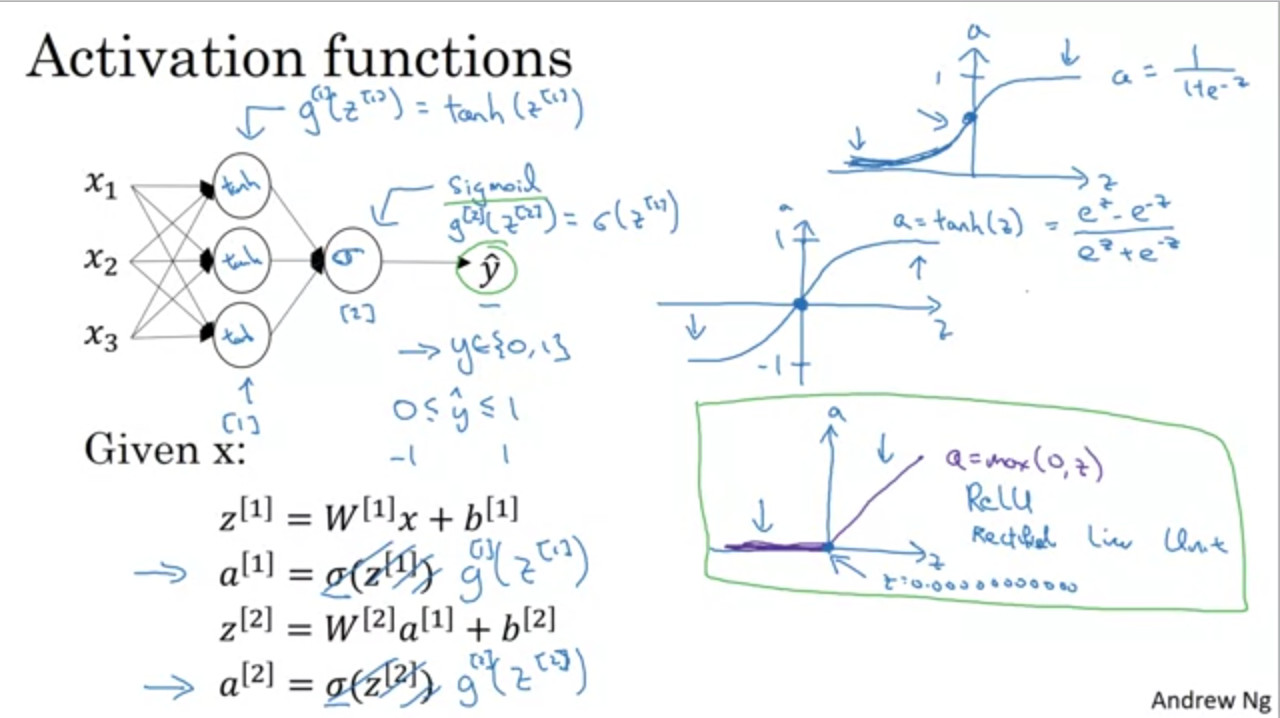 Activation functions
g^[1](z^[1]) = tanh(z^[1])
x₁
x₂
x₃
tanh
tanh
tanh
σ
[1]
[2]
Sigmoid
g^[2](z^[2]) = σ(z^[2])
ŷ
→ y∈{0,1}
0 ≤ ŷ ≤ 1
-1 1
Given x:
z^[1] = W^[1]x + b^[1]
→ a^[1] = σ(z^[1]) g^[1](z^[1])
z^[2] = W^[2]a^[1] + b^[2]
→ a^[2] = σ(z^[2]) g^[2](z^[2])
a
1
a = 1/(1+e^-z)
z
a
1
a = tanh(z) = (e^z - e^-z)/(e^z + e^-z)
z
-1
a
a = max(0,z)
ReLU
Rectified Linear Unit
z
z=0.00000000000
Andrew Ng